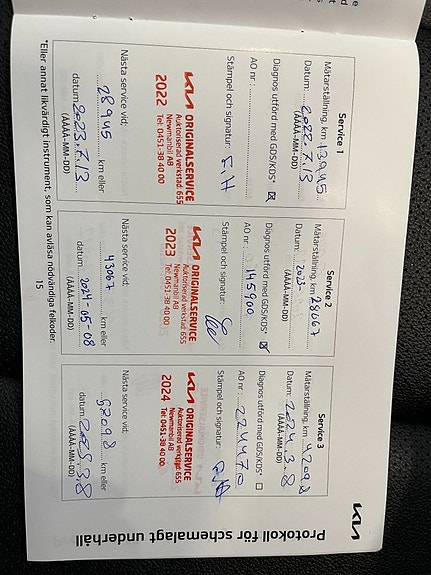 KIA
Protokoll för schemalagt underhåll
Service 1
Mätarställning, km 13945
Datum: 2022.7.13
(ÅÅÅÅ-MM-DD)
Diagnos utförd med GDS/KDS*
AO nr :
Stämpel och signatur: F.H
KIA ORIGINALSERVICE
Auktoriserad verkstad: 655
Newmanbil AB
2022 Tel: 0451-38 40 00
Nästa service vid:
28945 km eller
datum 2023.7.13
(ÅÅÅÅ-MM-DD)
Service 2
Mätarställning, km 28067
Datum: 2023-
(ÅÅÅÅ-MM-DD)
Diagnos utförd med GDS/KDS*
AO nr : 145900
Stämpel och signatur:
KIA ORIGINALSERVICE
Auktoriserad verkstad: 655
Newmanbil AB
2023 Tel: 0451-38 40 00
Nästa service vid:
43067 km eller
datum 2024-05-08
(ÅÅÅÅ-MM-DD)
Service 3
Mätarställning, km 42098
Datum: 2024.3.8
(ÅÅÅÅ-MM-DD)
Diagnos utförd med GDS/KDS*
AO nr : 224470
Stämpel och signatur:
KIA ORIGINALSERVICE
Auktoriserad verkstad: 655
Newmanbil AB
2024 Tel: 0451-38 40 00
Nästa service vid:
km eller
datum 2025.3.8
(ÅÅÅÅ-MM-DD)
*Eller annat likvärdigt instrument, som kan avläsa nödvändiga felkoder.
15